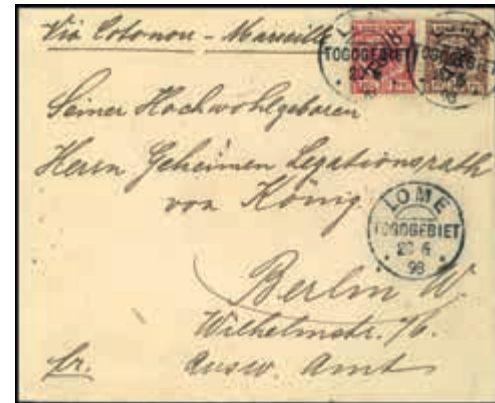 Via Cotonou - Marseille
LOME
TOGOGEBIET
20 6
98
LOME
TOGOGEBIET
20 6
98
Seiner Hochwohlgeboren
Herrn Geheimen Legationsrath
von König
LOME
TOGOGEBIET
20 6
98
Berlin W.
Wilhelmstr. 76.
fr. Ausw. Amt